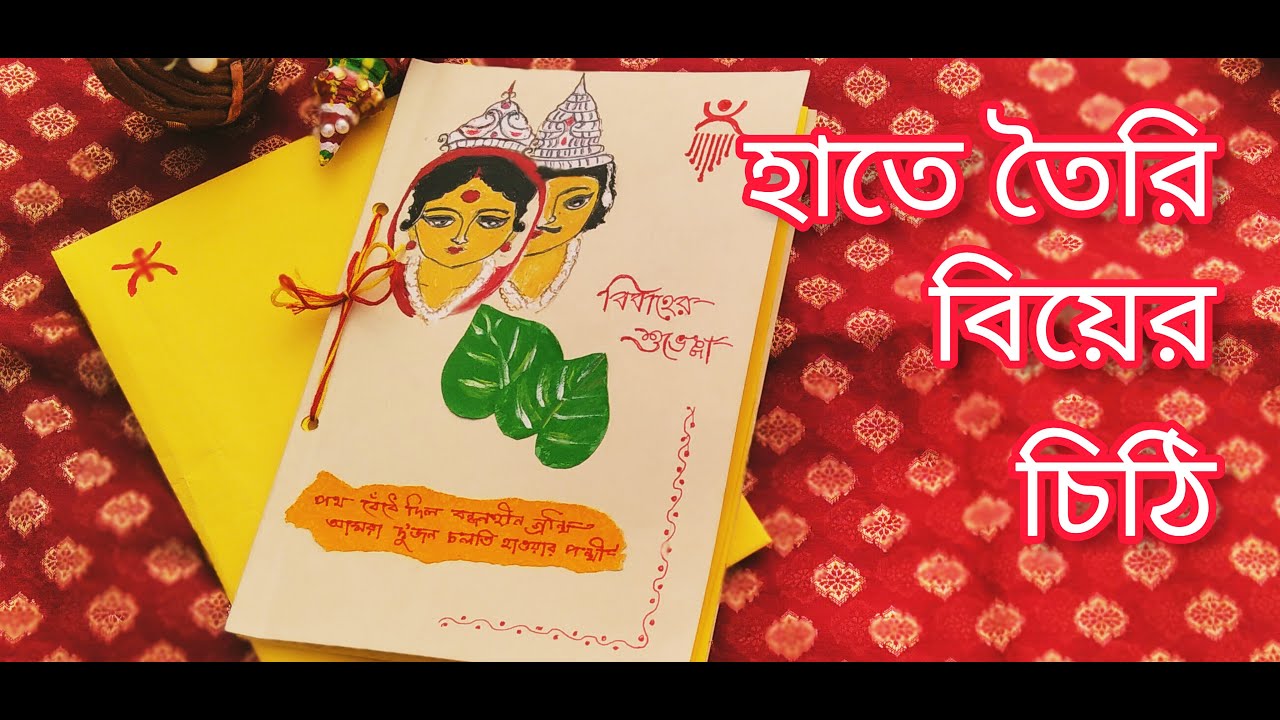 হাতে তৈরি
বিয়ের
চিঠি
বিবাহের
শুভেচ্ছা
পথ বেঁধে দিল বন্ধনহীন গ্রন্থি
আমরা দু'জন চলতি হাওয়ার পন্থী